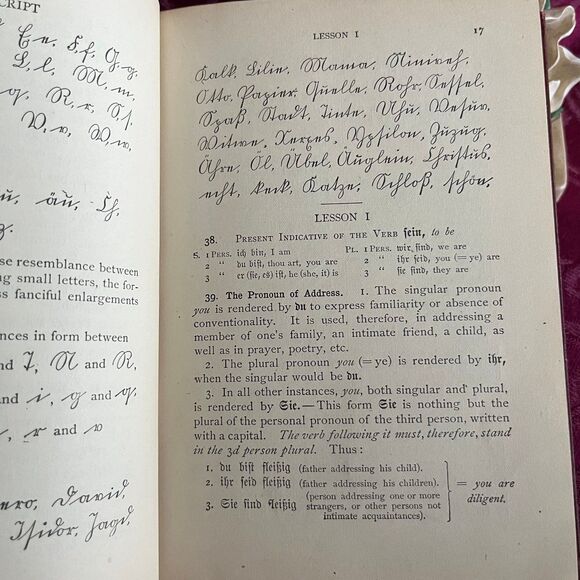 CRIPT
E e, F, f, G, g,
L, l, M, m,
q, R, r, S, s,
V, v, W, w,
äu, Ch,
se resemblance between
ng small letters, the for-
ss fanciful enlargements
nces in form between
nd I, N and R,
and i, g and q,
r and v
ero, David,
Isidor, Jagd,
LESSON I 17
Kalk, Lilie, Mama, Niniveh,
Otto, Papier, Quelle, Rohr, Sessel,
Spaß, Stadt, Tinte, Uhu, Vesuv,
Witwe, Xerxes, Ypsilon, Zuzug.
Ähre, Öl, Übel, Äuglein, Christus,
echt, keck, Katze, Schloß, schön.
LESSON I
38. PRESENT INDICATIVE OF THE VERB sein, to be
S. 1 PERS. ich bin, I am PL. 1 PERS. wir sind, we are
2 " du bist, thou art, you are 2 " ihr seid, you (= ye) are
3 " er (sie, es) ist, he (she, it) is 3 " sie sind, they are
39. The Pronoun of Address. 1. The singular pronoun
you is rendered by du to express familiarity or absence of
conventionality. It is used, therefore, in addressing a
member of one's family, an intimate friend, a child, as
well as in prayer, poetry, etc.
2. The plural pronoun you (= ye) is rendered by ihr,
when the singular would be du.
3. In all other instances, you, both singular and plural,
is rendered by Sie. — This form Sie is nothing but the
plural of the personal pronoun of the third person, written
with a capital. The verb following it must, therefore, stand
in the 3d person plural. Thus:
1. du bist fleißig (father addressing his child).
2. ihr seid fleißig (father addressing his children). = you are
(person addressing one or more diligent.
3. Sie sind fleißig strangers, or other persons not
intimate acquaintances).